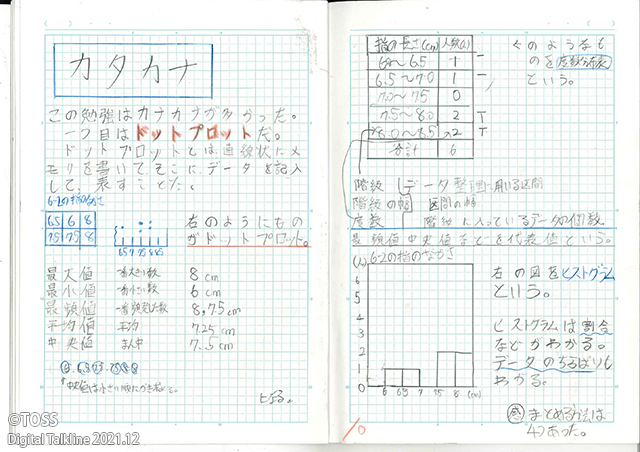 カタカナ
この勉強はカナカナが多かった。
一つ目はドットプロットだ。
ドットプロットとは、直線状にメ
モリを書いて、そこにデータを記入
して、表すことだ。
6-2の指の長さ
6.5 6 8
7.5 7.5 8
右のようにもの
がドットプロット。
最大値 一番大きい数 8cm
最小値 一番小さい数 6cm
最頻値 8,75cm
平均値 平均 7.25cm
中央値 まん中 7.5cm
©TOSS
Digital Talkline 2021.12
指の長さ(cm) 人数(人)
6.0〜6.5 1 一
6.5〜7.0 1 一
7.0〜7.5 0
7.5〜8.0 2 T
8.0〜8.5 2 T
合計 6
のようなも
のを度数分布表
という。
階級 データ整理に用いる区間
階級の幅 区間の幅
度数 階級に入っているデータの個数
最頻値中央値などを代表値という。
(人) 6-2の指のながさ
6
5
4
3
2
1
0
6 6.5 7 7.5 8 (cm)
右の図をヒストグラム
という。
ヒストグラムは割合
などがわかる。
データのちらばりも
わかる。
感 まとめる方法は
4つあった。
10